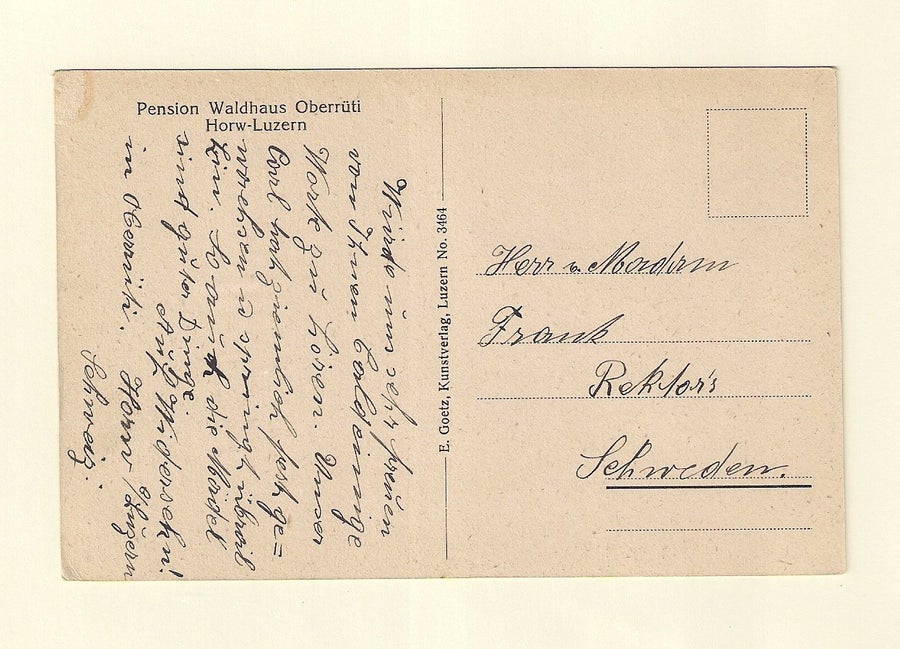 Pension Waldhaus Oberrüti
Horw-Luzern
Würde sehr freuen
von Ihnen bald einige
Worte zu hören. Unser
Carl ziemlich ge=
wachsen u springt überal
hin. So auch die Mädel
sind guter Dinge.
Auf Widersehn!
in Oberrüti. Horw/Luzern
Schweiz.
E. Goetz, Kunstverlag, Luzern No. 3464
Herr u. Madam
Frank
Rektor's
Schweden.